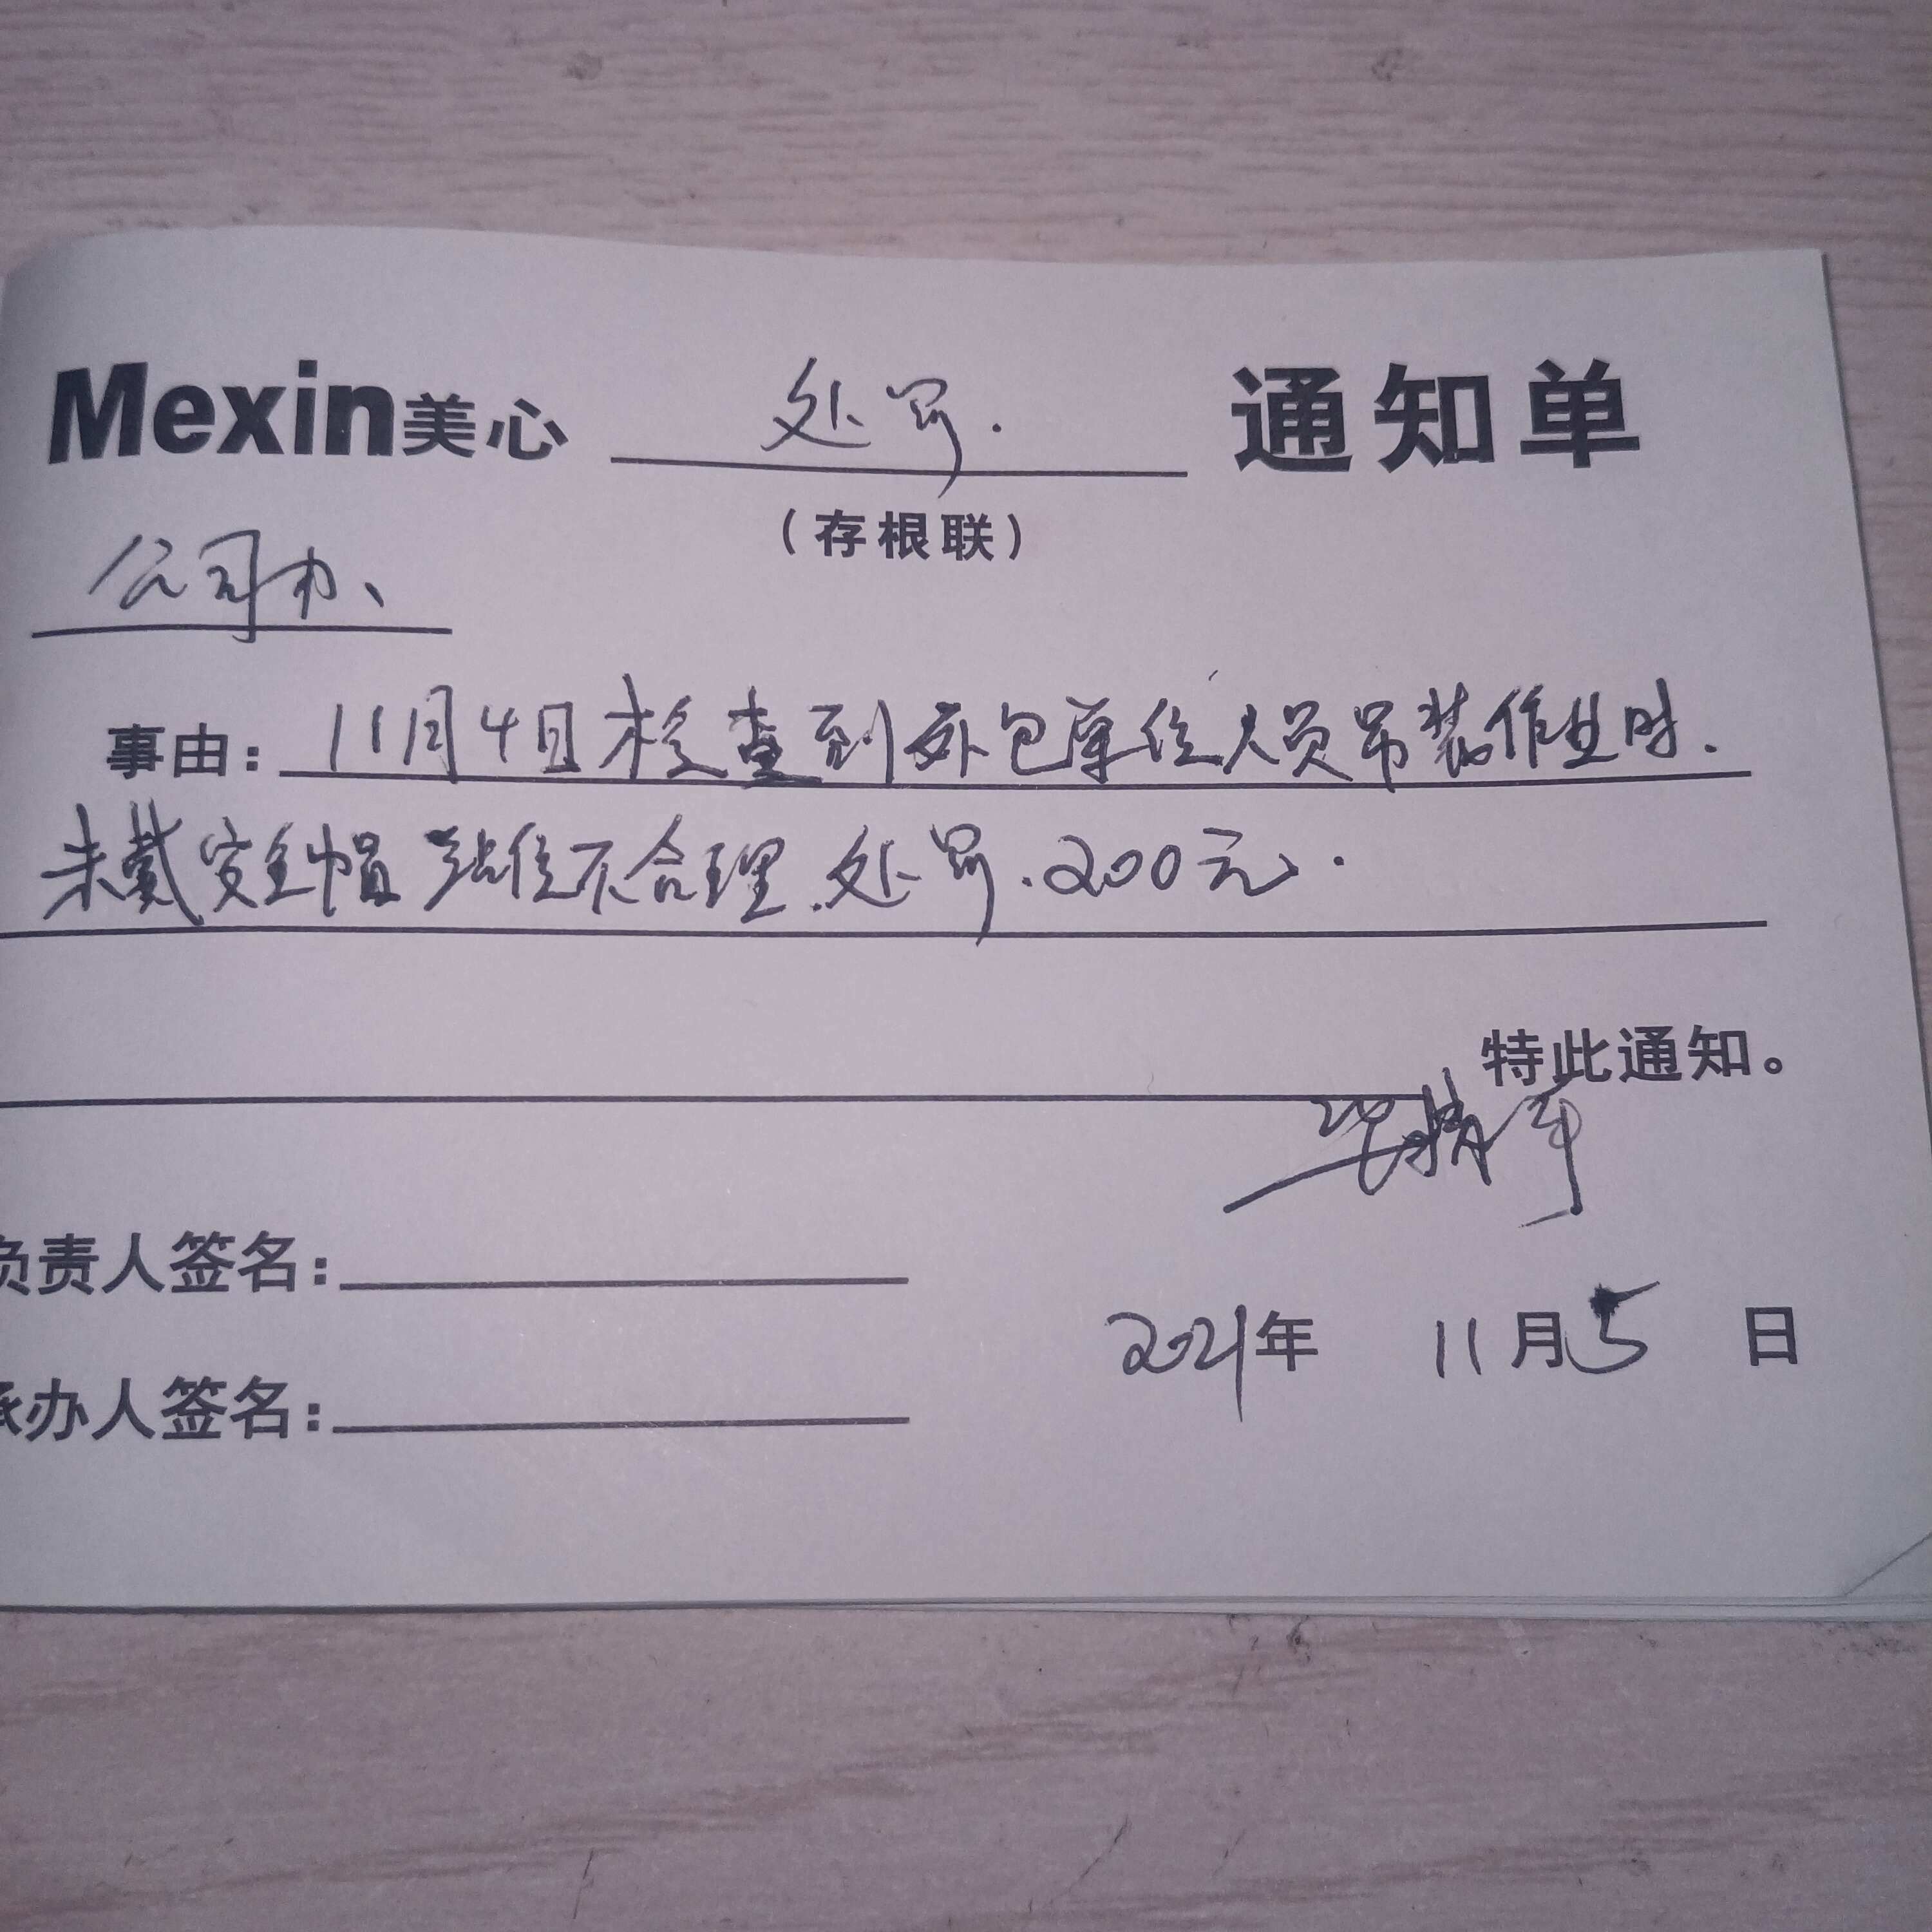 Mexin美心 处罚. 通知单
（存根联）
公司办、
事由：11月4日检查到外包单位人员吊装作业时.
未戴安全帽 站位不合理.处罚.200元.
特此通知。
负责人签名：
2021年 11月5日
承办人签名：